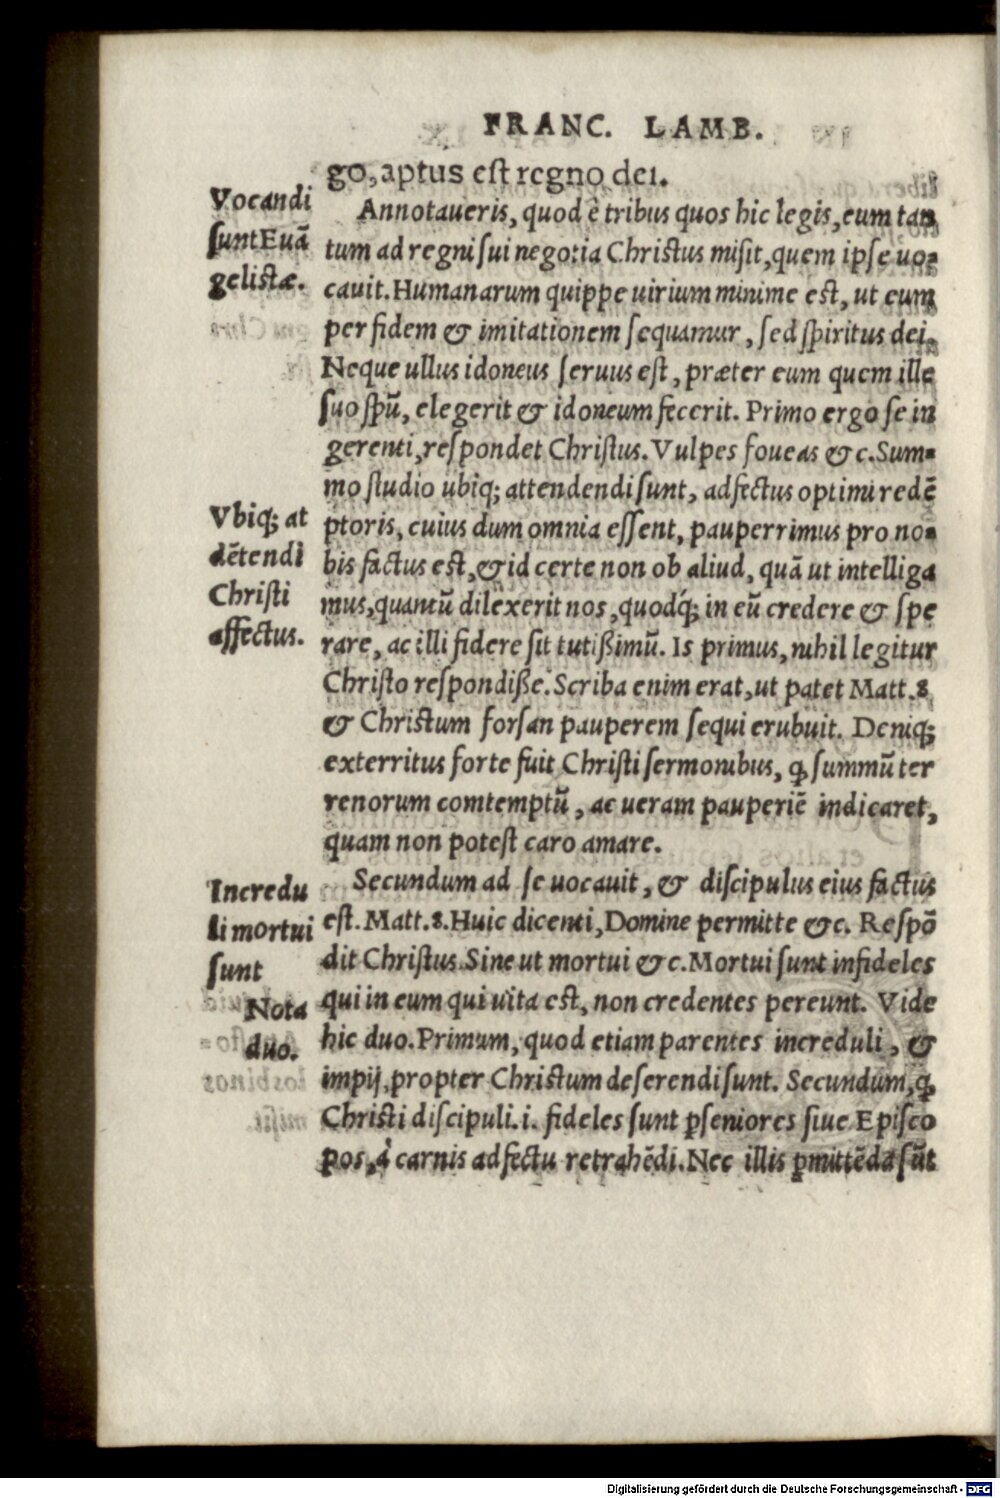 FRANC. LAMB.
go, aptus est regno dei.
Vocandi
sunt Euā
gelistæ.
Annotaueris, quod è tribus quos hic legis, eum tan
tum ad regni sui negotia Christus misit, quem ipse uo-
cauit. Humanarum quippe uirium minime est, ut eum
per fidem & imitationem sequamur, sed spiritus dei.
Neque ullus idoneus seruus est, præter eum quem ille
suo spū, elegerit & idoneum fecerit. Primo ergo se in
gerenti, respondet Christus. Vulpes foueas &c. Sum-
mo studio ubiq; attendendi sunt, adfectus optimi redē
Vbiq; at
dētendi
Christi
affectus.
ptoris, cuius dum omnia essent, pauperrimus pro no-
bis factus est, & id certe non ob aliud, quā ut intelliga
mus, quantū dilexerit nos, quodq́; in eū credere & spe
rare, ac illi fidere sit tutißimū. Is primus, nihil legitur
Christo respondiße. Scriba enim erat, ut patet Matt. 8
& Christum forsan pauperem sequi erubuit. Deniq;
exterritus forte fuit Christi sermonibus, ꝙ summū ter
renorum comtemptū, ac ueram pauperiē indicaret,
quam non potest caro amare.
Incredu
li mortui
sunt
Nota
duo.
Secundum ad se uocauit, & discipulus eius factus
est. Matt. 8. Huic dicenti, Domine permitte &c. Respō
dit Christus. Sine ut mortui &c. Mortui sunt infideles
qui in eum qui uita est, non credentes pereunt. Vide
hic duo. Primum, quod etiam parentes increduli, &
impij, propter Christum deserendi sunt. Secundum, ꝙ
Christi discipuli .i. fideles sunt ꝑ seniores siue Episco
pos, à carnis adfectu retrahēdi. Nec illis ꝑmittēda sūt
Digitalisierung gefördert durch die Deutsche Forschungsgemeinschaft - DFG